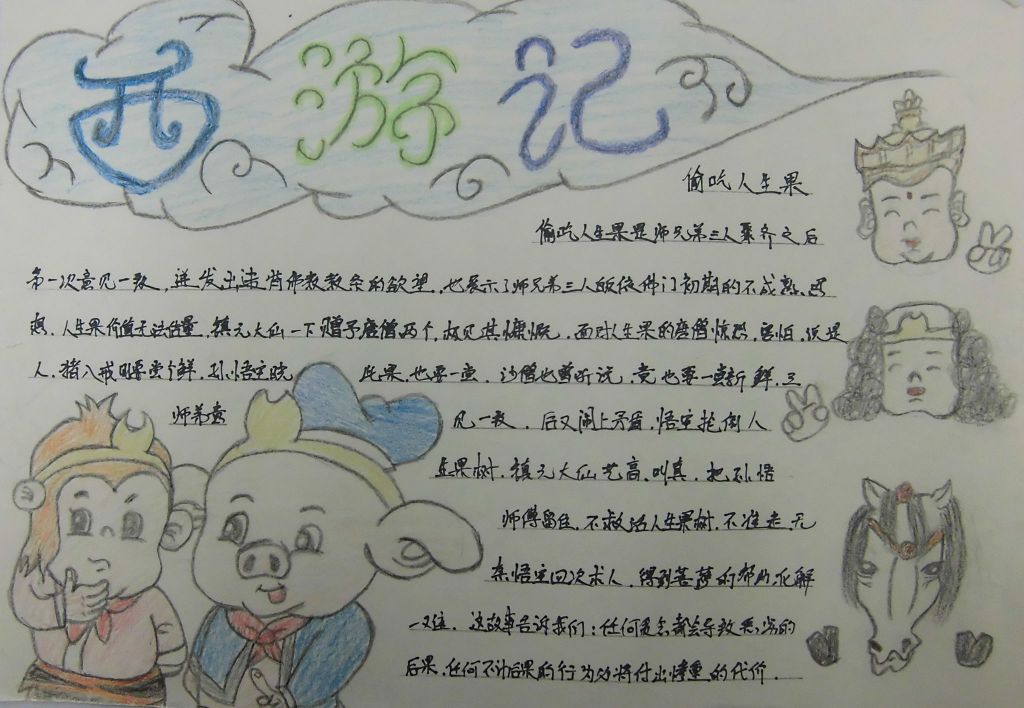 西游记
偷吃人生果
偷吃人生果是师兄弟三人聚齐之后
第一次意见一致,迸发出违背佛教教条的欲望,也展示了师兄弟三人皈依佛门初期的不成熟思
想.人生果价值无法估量,镇元大仙一下赠予唐僧两个,极见其慷慨.面对人生果的唐僧惊愁,害怕,说是
人.猪八戒要尝个鲜.孙悟空晓 此果,也要一尝.沙僧也曾听说,竟也要一尝新鲜.三
师弟意 见一致. 后又闹上矛盾.悟空抡倒人
生果树.镇元大仙艺高,叫真.把孙悟
师傅留住,不救活人生果树,不准走.无
奈悟空四次求人,得到菩萨的帮助,化解
一难.这故事告诉我们:任何意念都会导致恶劣的
后果,任何不计后果的行为必将付出惨重的代价.